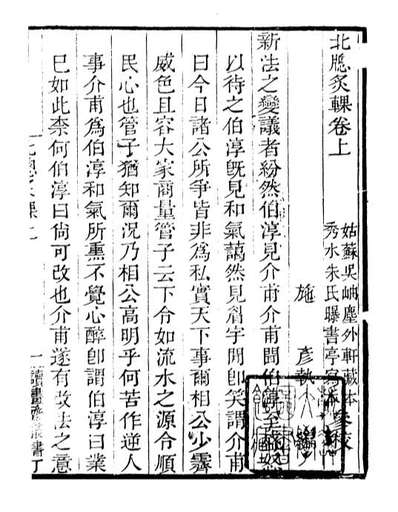 北牕炙輠卷上
姑蘇吳岫塵外軒藏本
秀水朱氏曝書亭寫本參校
施彥執
新法之變議者紛然伯淳見介甫介甫聞伯淳至盛怒
以待之伯淳既見和氣藹然見眉宇間即笑謂介甫
曰今日諸公所爭皆非為私實天下事爾相公少霽
威色且容大家商量管子云下令如流水之源令順
民心也管子猶知爾況乃相公高明乎何苦作逆人
事介甫為伯淳和氣所熏不覺心醉卽謂伯淳曰業
已如此柰何伯淳曰尙可改也介甫遂有改法之意
讀畫齋叢書丁